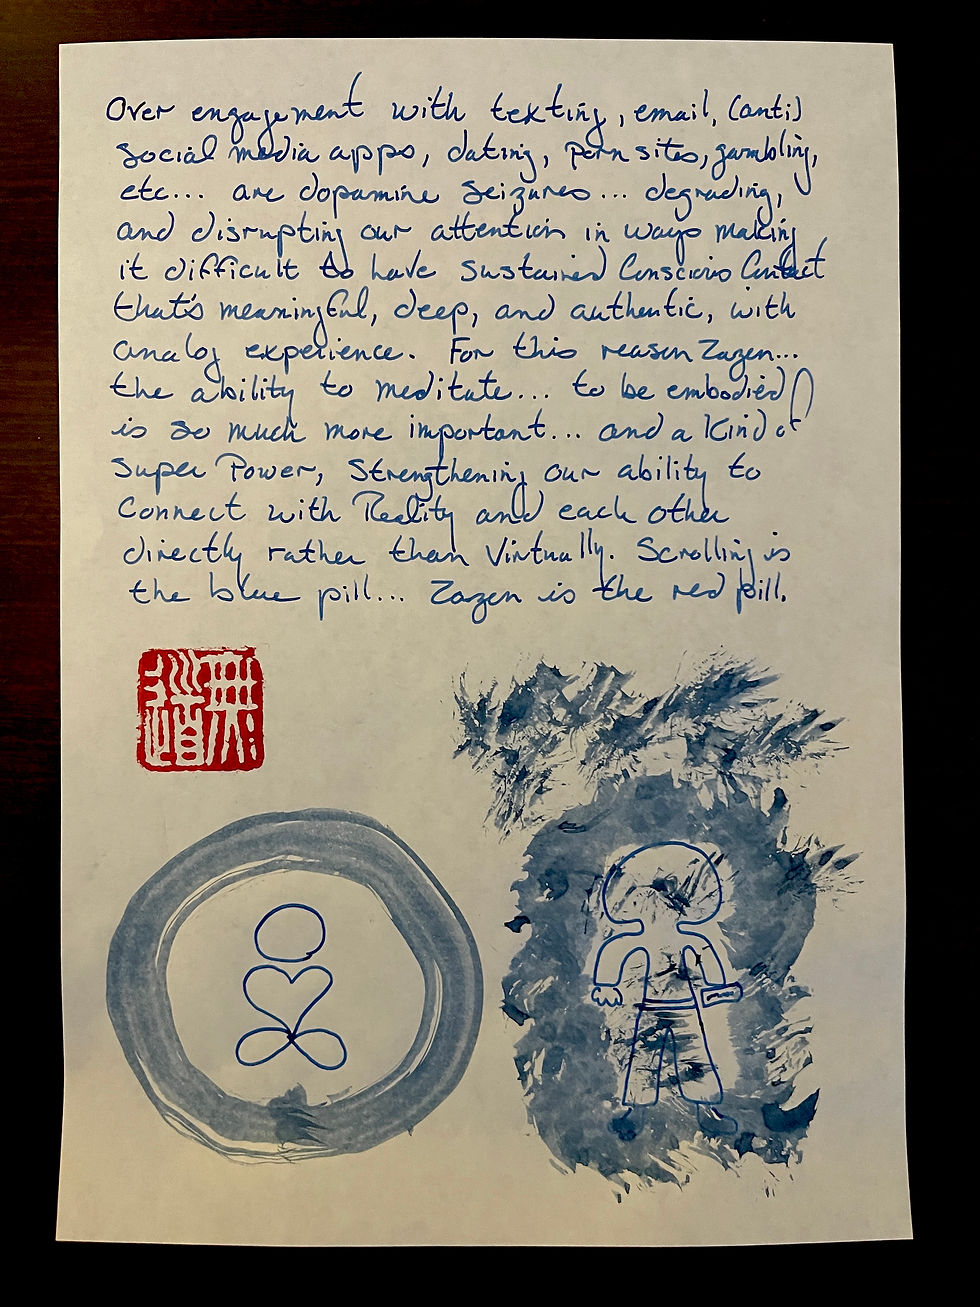 Over engagement with texting, email, (anti)
social media apps, dating, porn sites, gambling,
etc... are dopamine seizures... degrading,
and disrupting our attention in ways making
it difficult to have sustained Conscious Contact
that's meaningful, deep, and authentic, with
analog experience. For this reason Zazen...
the ability to meditate... to be embodied
is so much more important... and a kind of
Super Power, Strengthening our ability to
Connect with Reality and each other
directly rather than Virtually. Scrolling is
the blue pill... Zazen is the red pill.